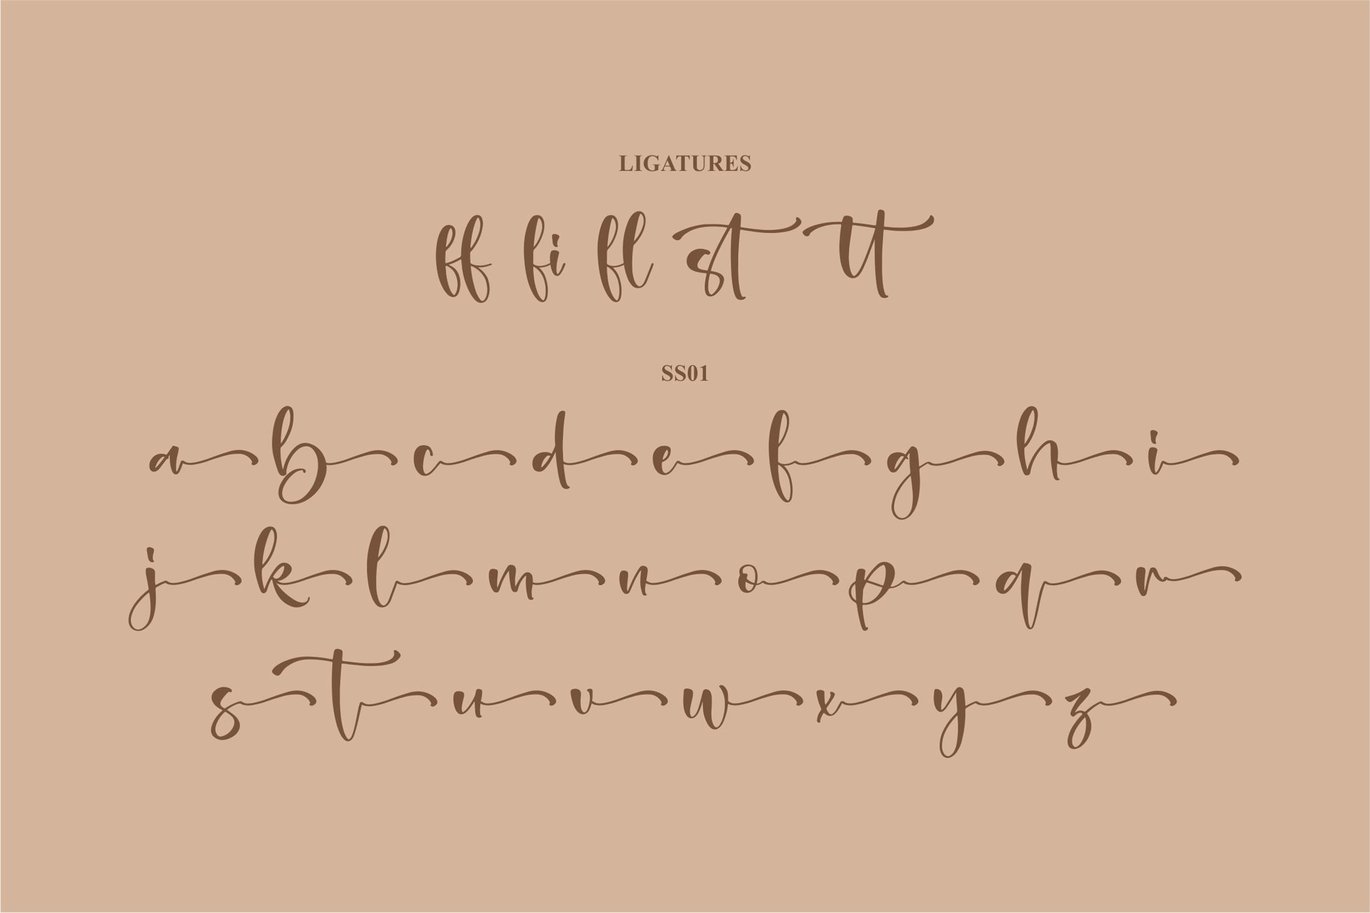 LIGATURES
ff fi fl st tt
SS01
a b c d e f g h i
j k l m n o p q r
s t u v w x y z